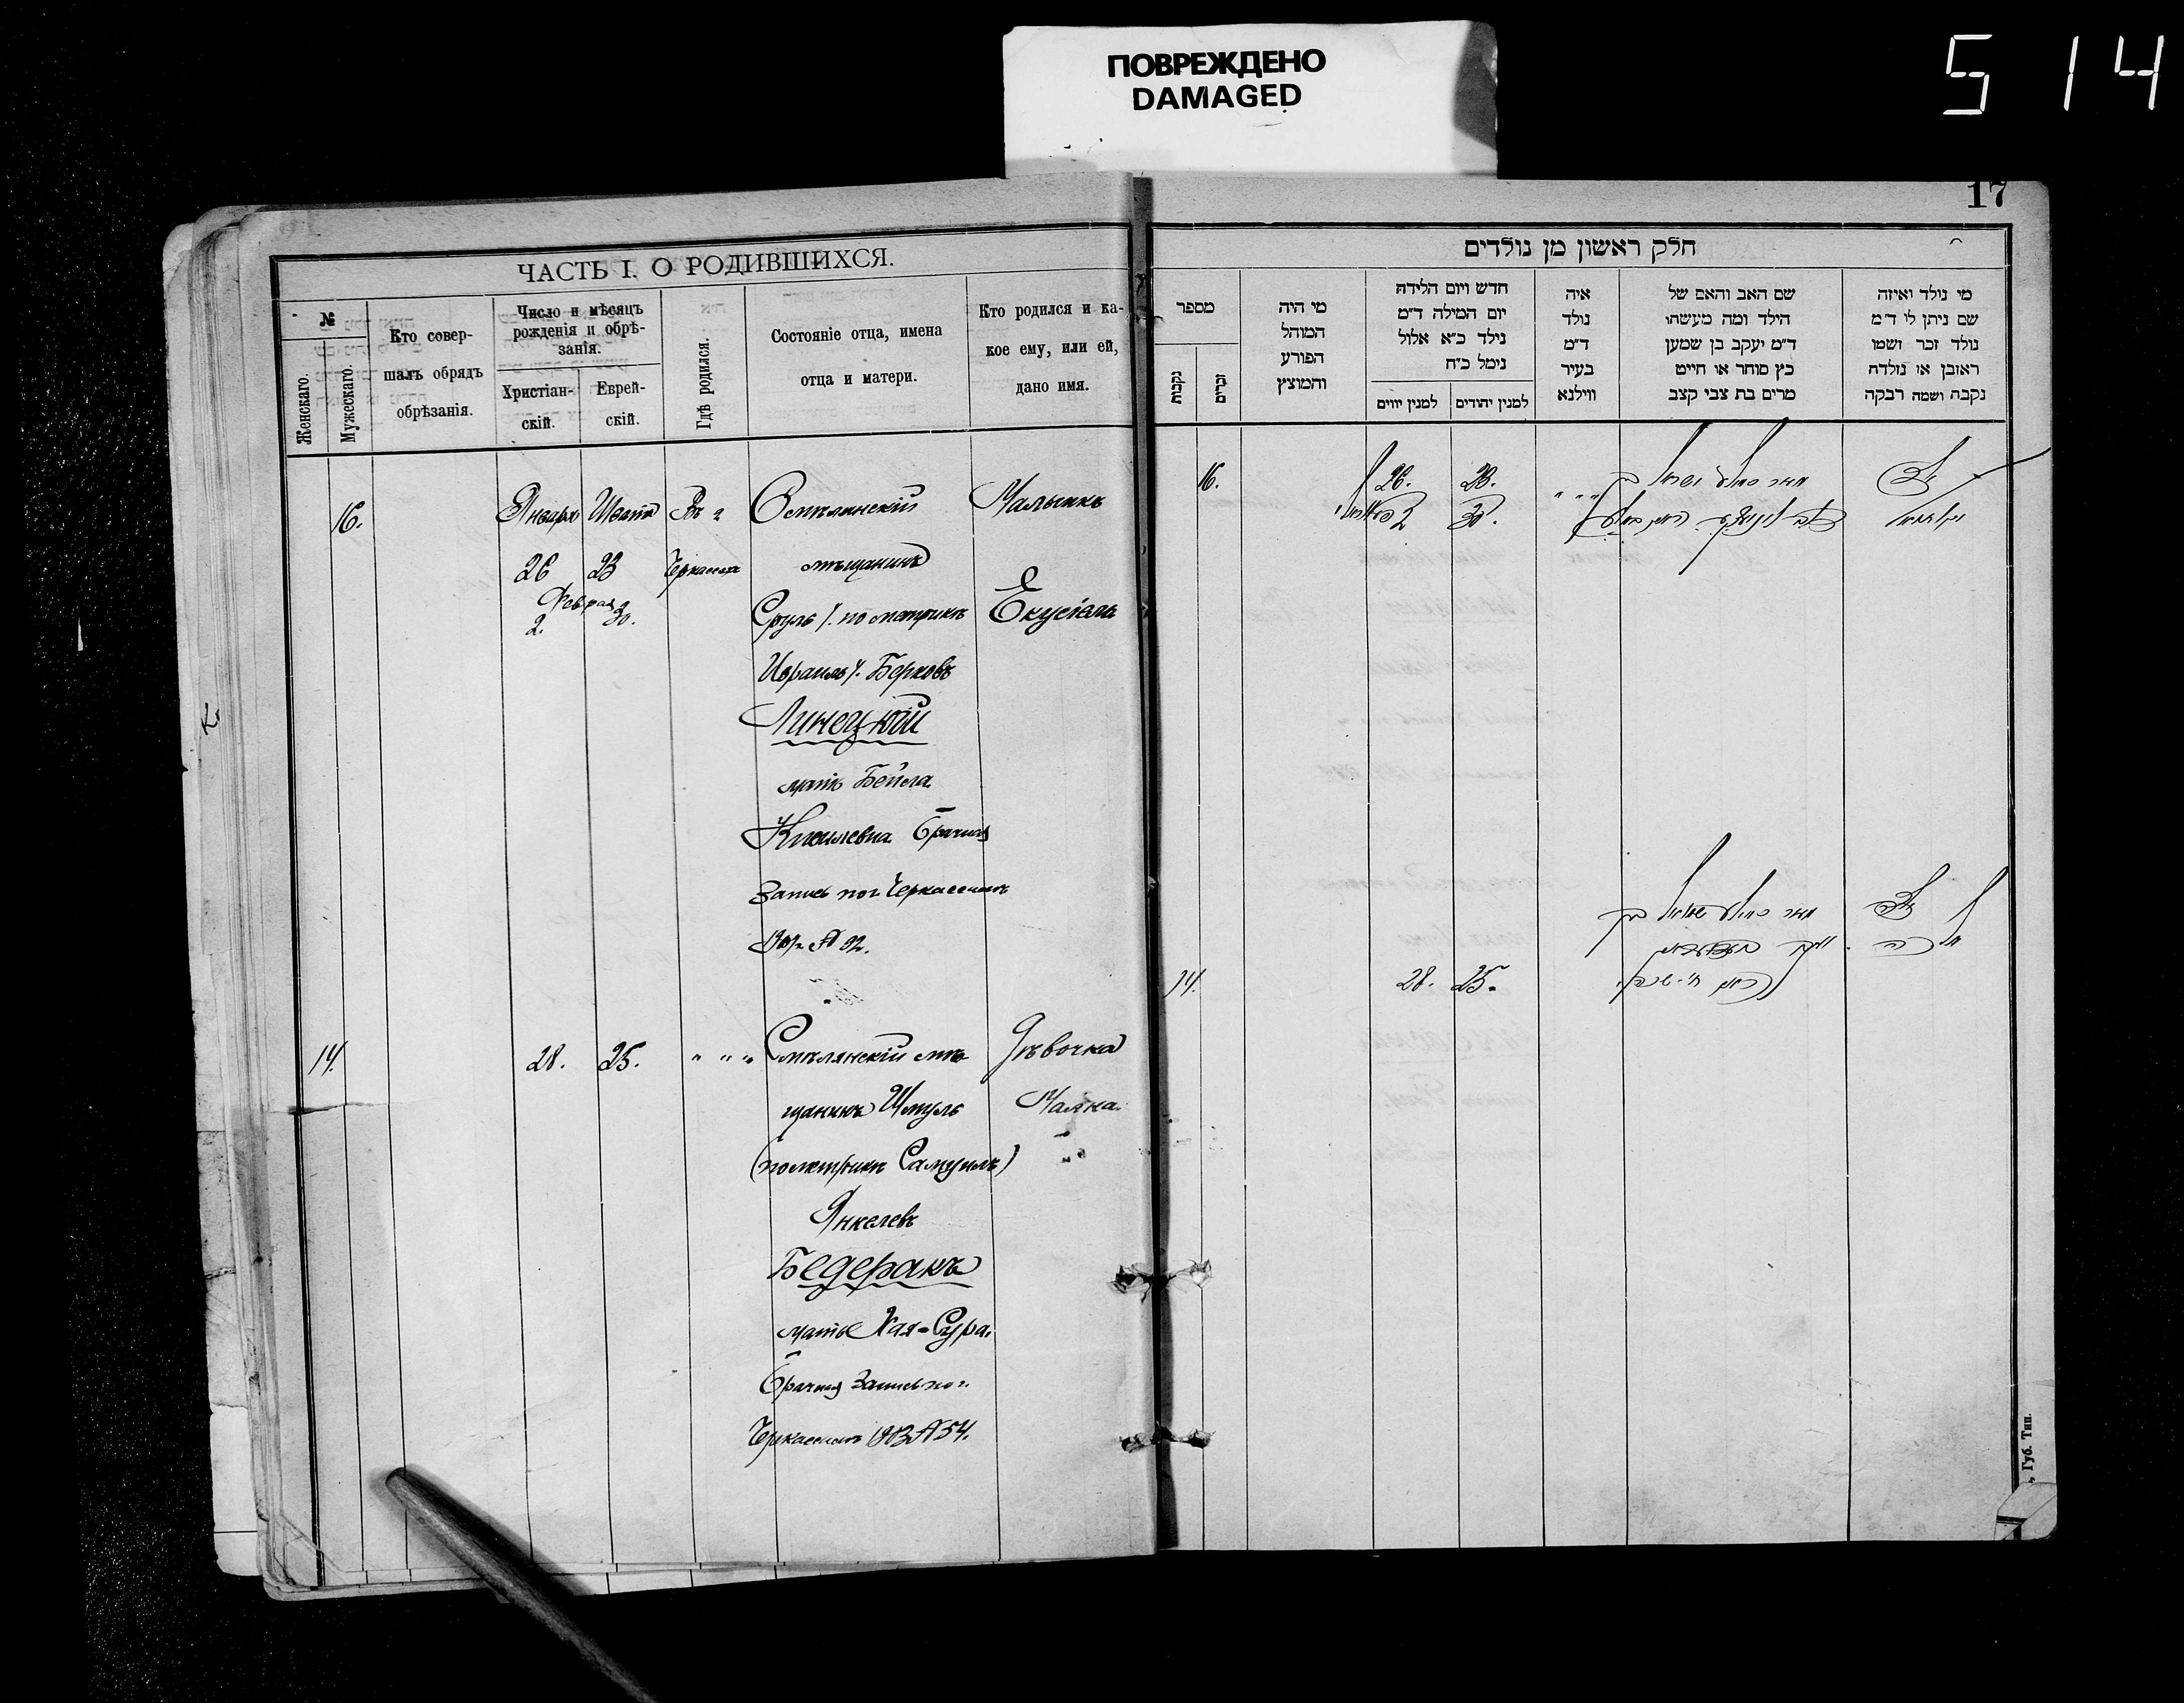 ПОВРЕЖДЕНО
DAMAGED
514
17
ЧАСТЬ I. О РОДИВШИХСЯ.
№
Женскаго.
Мужескаго.
Кто совер-
шалъ обрядъ
обрѣзанія.
Число и мѣсяцъ
рожденія и обрѣ-
занія.
Христіан-
скій.
Еврей-
скій.
Гдѣ родился.
Состояніе отца, имена
отца и матери.
Кто родился и ка-
кое ему, или ей,
дано имя.
16.
Января
26
Февраля
2.
Шватъ
23
30.
Въ г.
Черкассахъ
Смѣлянскій
мѣщанинъ
Сруль /. по метрикѣ
Израиль /. Берковъ
Линецкій
мать Бейла
Брачная
Запись по г. Черкассамъ
№ 92.
Мальчикъ
Екусіель
14.
28.
25.
" " "
Смѣлянскій мѣ
щанинъ Шмуль
(по метрикѣ Самуилъ)
Янкелевъ
Бедеракъ
мать Хая-Сура.
Брачная Запись по г.
Черкассамъ 1903 № 54.
Дѣвочка
Малка.
חלק ראשון מן נולדים
מספר
נקבות
זכרים
מי היה
המוהל
הפורע
והמוצץ
חדש ויום הלידה
יום המילה ד"מ
נילד כ"א אלול
נימל כ"ח
למנין יווים
למנין יהודים
איה
נולד
ד"מ
בעיר
ווילנא
שם האב והאם של
הילד ומה מעשהו
ד"מ יעקב בן שמען
כץ סוחר או חייט
מרים בת צבי קצב
מי נולד ואיזה
שם ניתן לי ד"מ
נולד זכר ושמו
ראובן או נולדה
נקבה ושמה רבקה
16.
26.
2
23.
30.
" " "
14.
28.
25.
Губ. Тип.